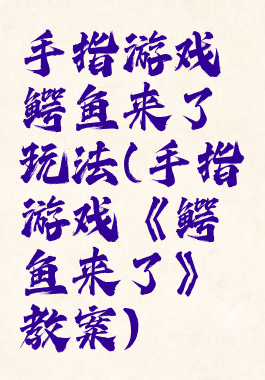 手指游戏
鳄鱼来了
玩法(手指
游戏《鳄
鱼来了》
教案)